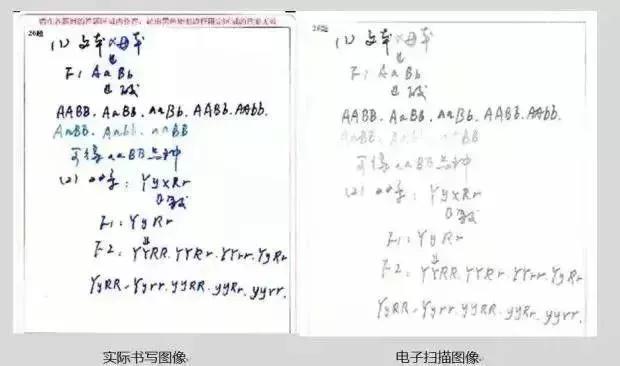 请在各题目的答题区域内作答，超出黑色矩形边框限定区域的答案无效
26题
(1) 父本×母本
↓
F1 AaBb
↓
AABB、AaBB、aaBb、AABb、AAbb、
AaBB、Aabb、aaBB
可得aaBB品种
(2) 亲: YyxRr
↓
F1: YyRr
↓
F2: YYRR、YYRr、YYrr、YyRr
YyRR、Yyrr、yyRR、yyRr、yyrr、
实际书写图像
26题
(1) 父本×母本
↓
F1 AaBb
↓
AABB、AaBB、aaBb、AABb、AAbb、
AaBB、Aabb、aaBB
可得aaBB品种
(2) 亲: YyxRr
F1: YyRr
↓
F2: YYRR、YYRr、YYrr、YyRr
YyRR、Yyrr、yyRR、yyRr、yyrr、
电子扫描图像